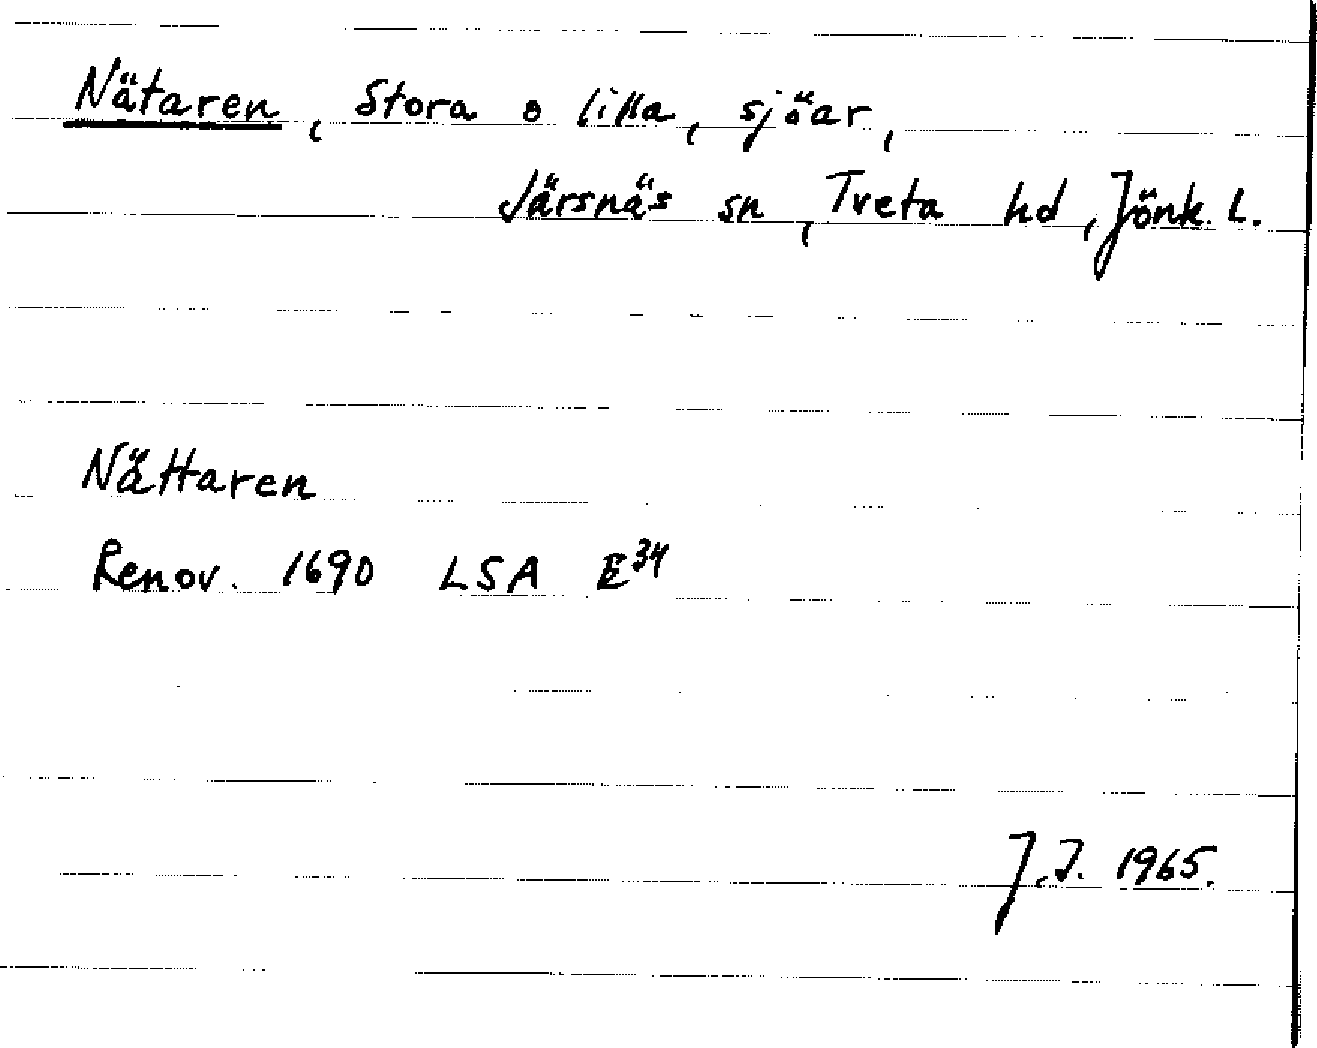 Nätaren, Stora o lilla, sjöar,
Järsnäs sn, Tveta hd, Jönk. L.
Nättaren
Renov. 1690 LSA E34
J.I. 1965.